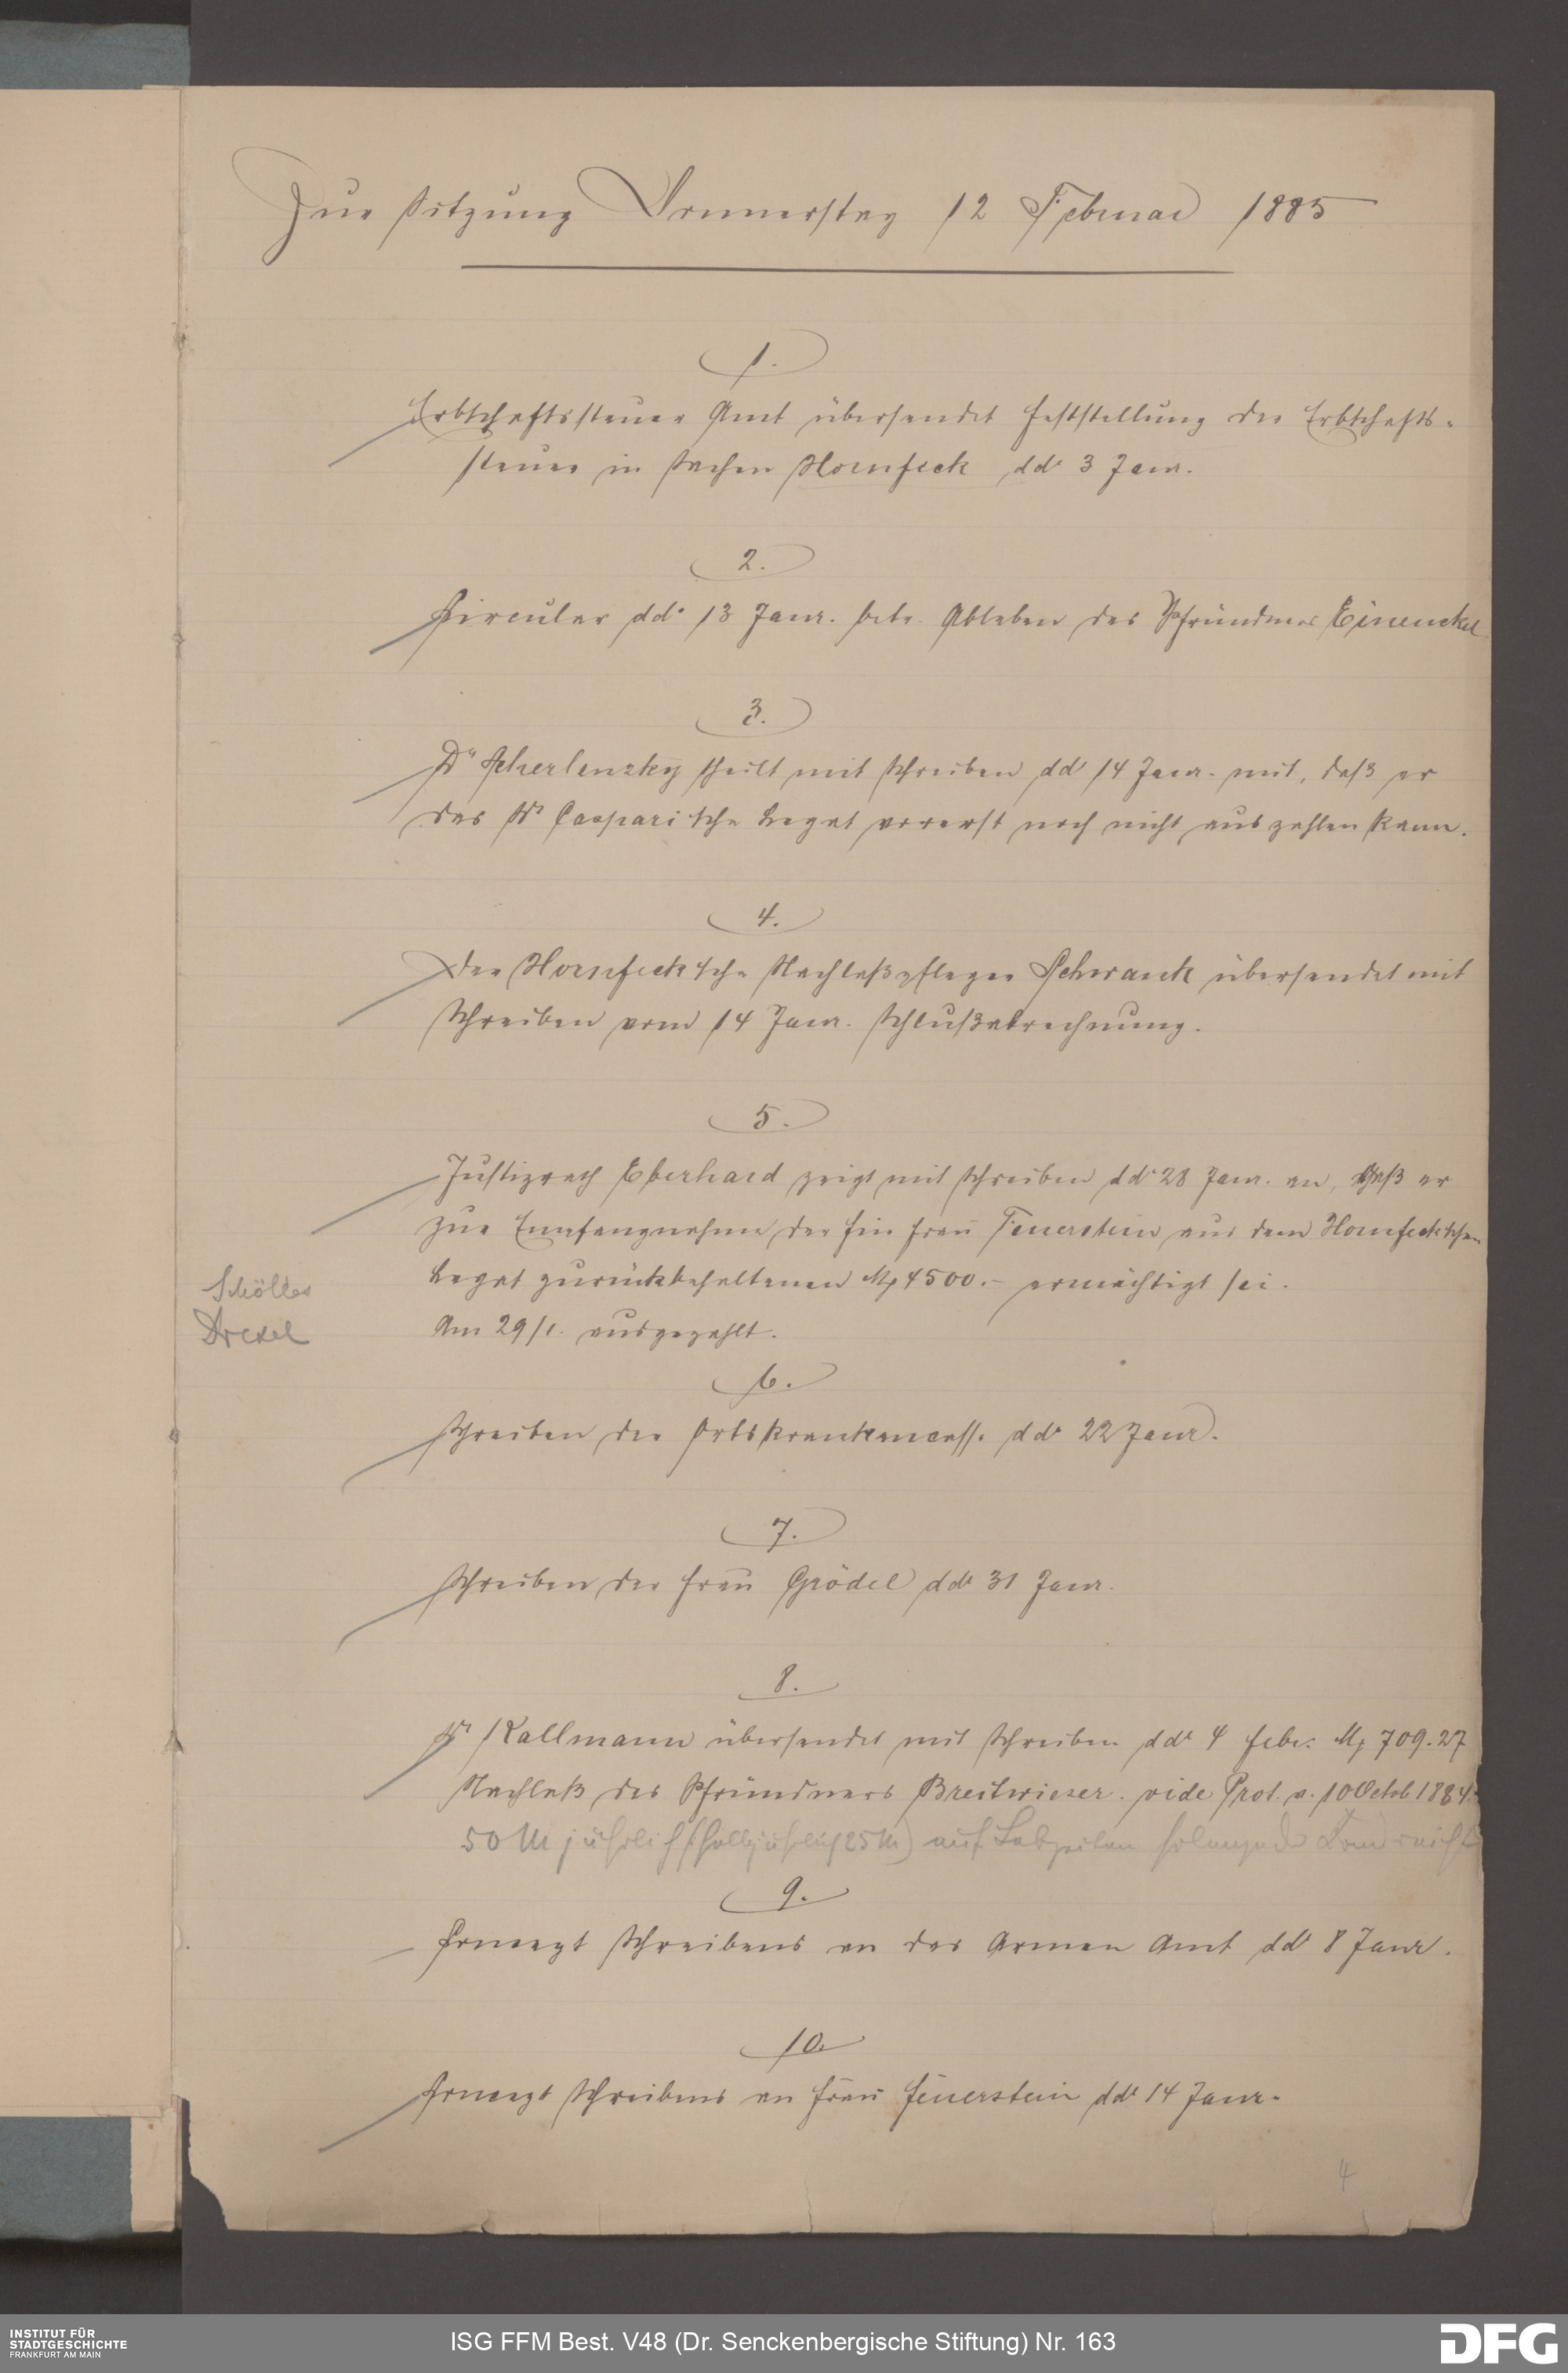 Zur Sitzung Donnerstag 12 Februar 1885
1.
Erbschaftssteuer Amt übersendet Feststellung der Erbschafts-
steuer in Sachen Hornfeck dd° 3 Janr.
2.
Circular dd° 13 Janr. betr. Ableben des Pfründners Einenckel
3.
Dr Scherlenzky theilt mit Schreiben dd° 14 Janr. mit, daß er
das Dr Caspari'sche Legat vorerst noch nicht auszahlen kann.
4.
Der Hornfeck'sche Nachlaßpfleger Schwanck übersendet mit
Schreiben vom 14 Janr. Schlußabrechnung.
5.
Justizrath Eberhard zeigt mit Schreiben dd° 28 Janr. an, daß er
zur Empfangnahme der für Frau Feuerstein aus dem Hornfeck'schen
Legat zurückbehaltenen M 4500.- ermächtigt sei.
Am 29/1. ausgezahlt.
Schölles
Drexel
6.
Schreiben der Ortskrankencasse dd° 22 Janr.
7.
Schreiben der Frau Grödel dd° 31 Janr.
8.
Dr Kallmann übersendet mit Schreiben dd° 4 Febr. M 709.27
Nachlaß des Pfründners Breitwieser. vide Prot. v. 10 Octob 1884.
50 M jährlich (halbjährlich 25 M) auf Lebzeiten solange der Fond reicht
9.
Concept Schreibens an das Armen Amt dd° 8 Janr.
10.
Concept Schreibens an Frau Feuerstein dd° 14 Janr.
4
INSTITUT FÜR
STADTGESCHICHTE
FRANKFURT AM MAIN
ISG FFM Best. V48 (Dr. Senckenbergische Stiftung) Nr. 163
DFG